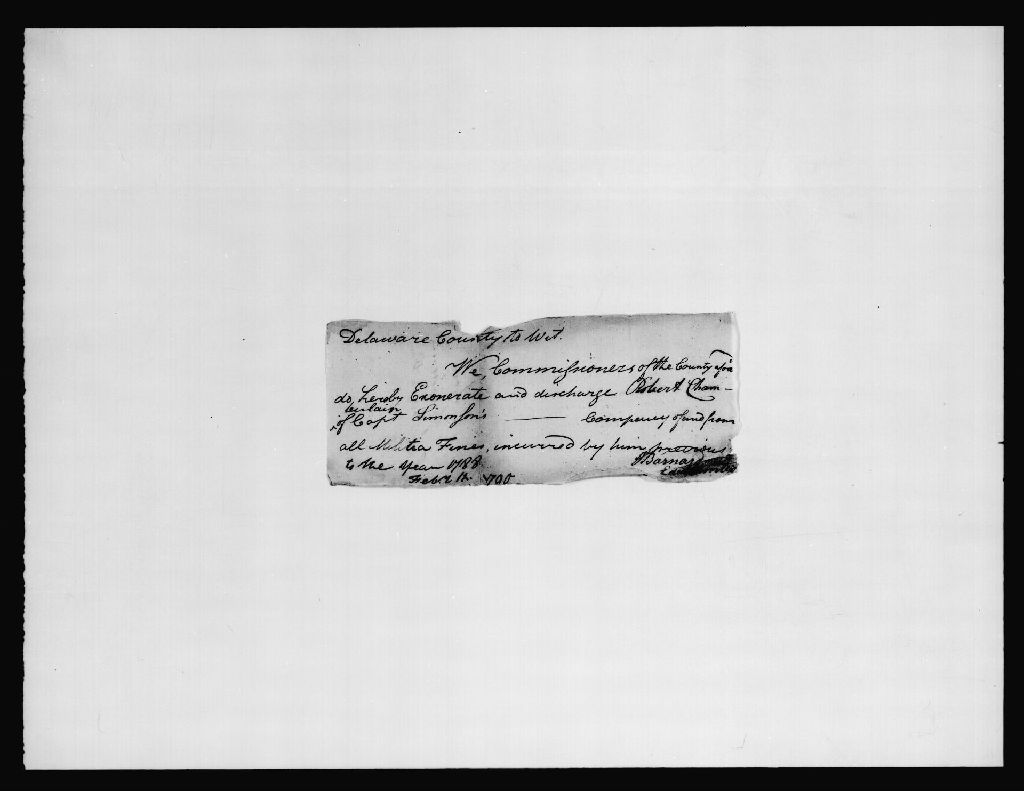 Delaware County to Wit.
We, Commissioners of the County afsd
do, hereby Exonerate and discharge Robert Cham-
berlain
of Capt Simonson's Company of and from
all Militia Fines, incurred by him previous
to the Year 1788
Feb.